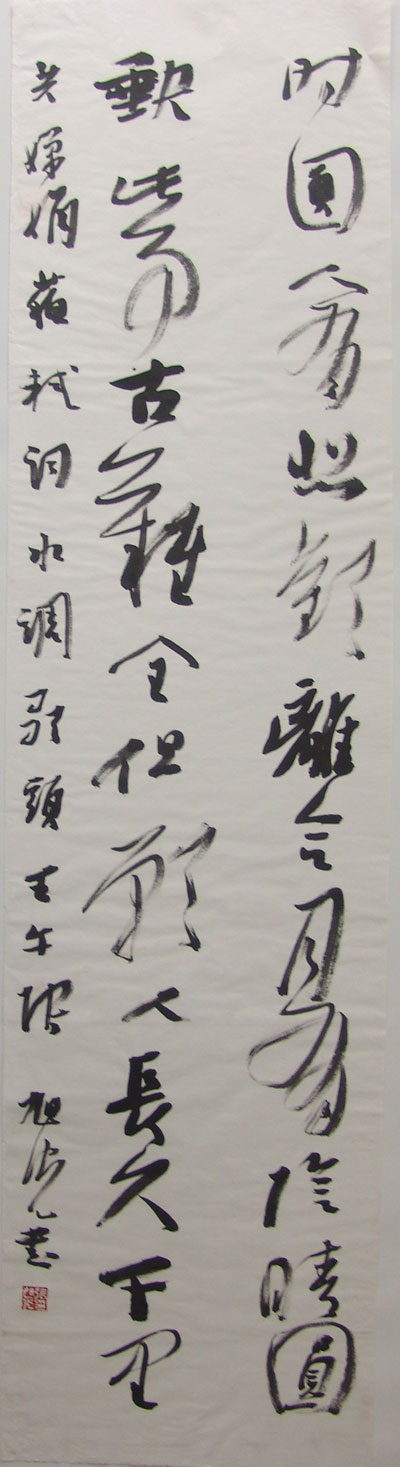 时圓人有悲歡離合月有陰晴圓
缺此事古難全但願人長久千里
共嬋娟蘇軾詞水調歌頭壬午張旭光書